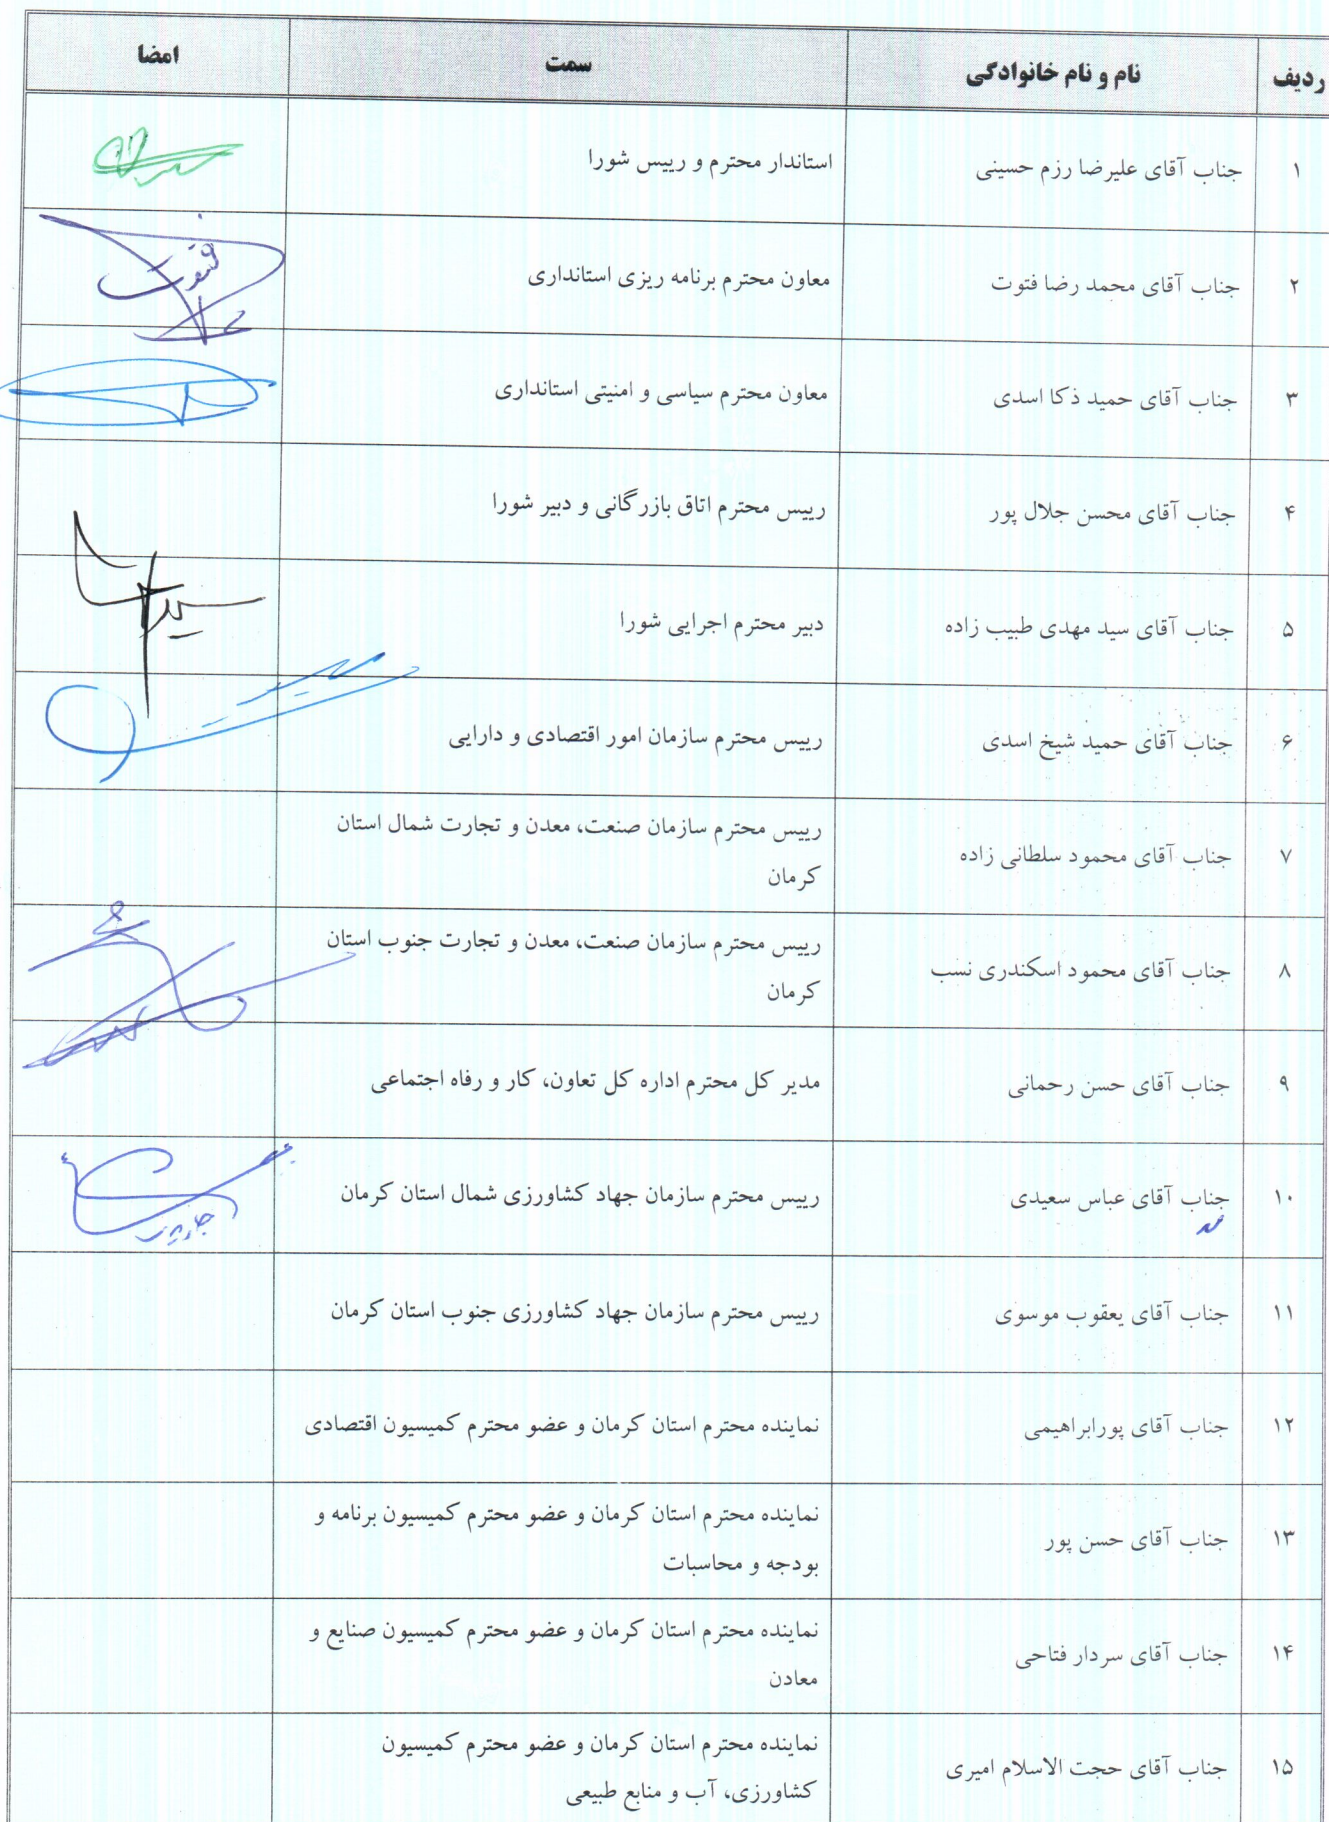 ردیف نام و نام خانوادگی سمت امضا
۱ جناب آقای علیرضا رزم حسینی استاندار محترم و رییس شورا
۲ جناب آقای محمد رضا فتوت معاون محترم برنامه ریزی استانداری
۳ جناب آقای حمید ذکا اسدی معاون محترم سیاسی و امنیتی استانداری
۴ جناب آقای محسن جلال پور رییس محترم اتاق بازرگانی و دبیر شورا
۵ جناب آقای سید مهدی طبیب زاده دبیر محترم اجرایی شورا
۶ جناب آقای حمید شیخ اسدی رییس محترم سازمان امور اقتصادی و دارایی
۷ جناب آقای محمود سلطانی زاده رییس محترم سازمان صنعت، معدن و تجارت شمال استان
کرمان
۸ جناب آقای محمود اسکندری نسب رییس محترم سازمان صنعت، معدن و تجارت جنوب استان
کرمان
۹ جناب آقای حسن رحمانی مدیر کل محترم اداره کل تعاون، کار و رفاه اجتماعی
۱۰ جناب آقای عباس سعیدی رییس محترم سازمان جهاد کشاورزی شمال استان کرمان
۱۱ جناب آقای یعقوب موسوی رییس محترم سازمان جهاد کشاورزی جنوب استان کرمان
۱۲ جناب آقای پورابراهیمی نماینده محترم استان کرمان و عضو محترم کمیسیون اقتصادی
۱۳ جناب آقای حسن پور نماینده محترم استان کرمان و عضو محترم کمیسیون برنامه و
بودجه و محاسبات
۱۴ جناب آقای سردار فتاحی نماینده محترم استان کرمان و عضو محترم کمیسیون صنایع و
معادن
۱۵ جناب آقای حجت الاسلام امیری نماینده محترم استان کرمان و عضو محترم کمیسیون
کشاورزی، آب و منابع طبیعی